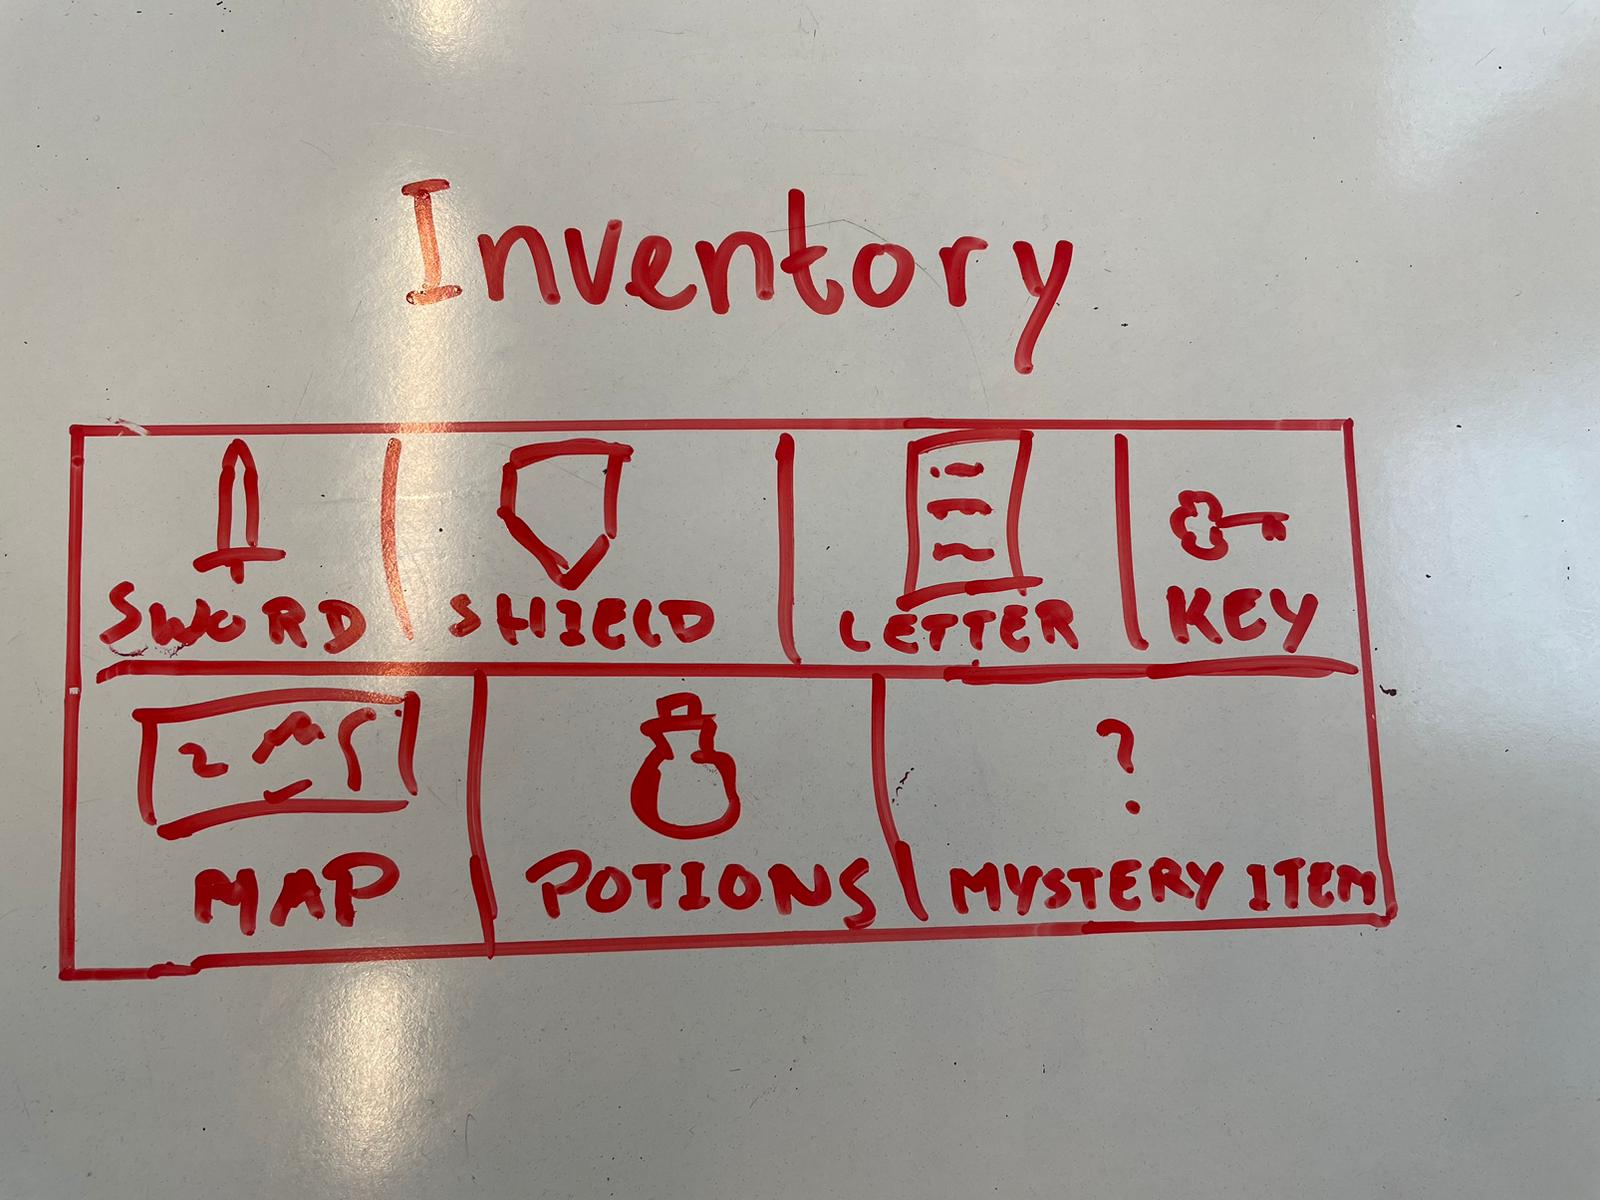 Inventory
SWORD SHIELD LETTER KEY
?
MAP POTIONS MYSTERY ITEM